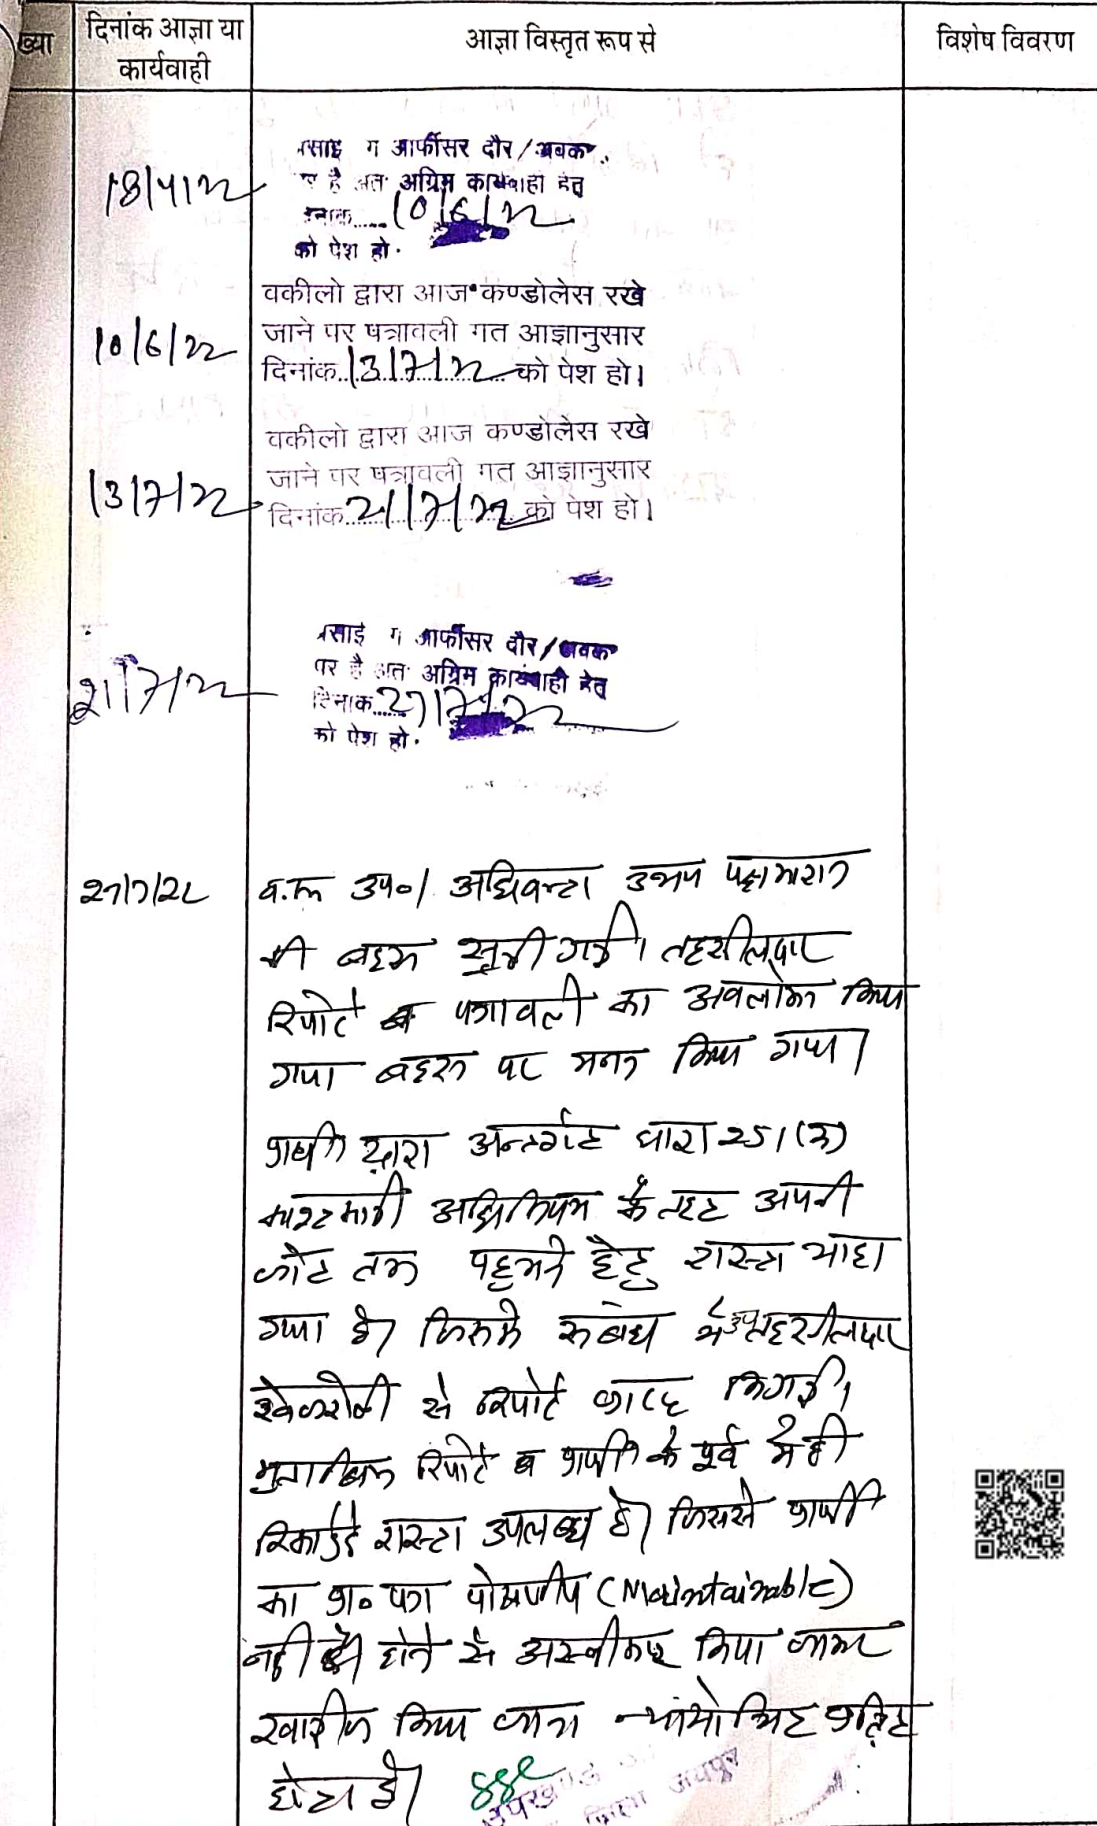 ख्या
दिनांक आज्ञा या
कार्यवाही
आज्ञा विस्तृत रूप से
विशेष विवरण
18/4/22
आफीसर दौर/
है अत अग्रिम कार्यवाही हेतु
10/6/22
को पेश हो.
10/6/22
वकीलो द्वारा आज कण्डोलेस रखे
जाने पर पत्रावली गत आज्ञानुसार
दिनांक 13/7/22 को पेश हो।
13/7/22
वकीलो द्वारा आज कण्डोलेस रखे
जाने पर पत्रावली गत आज्ञानुसार
दिनांक 21/7/22 को पेश हो।
21/7/22
आफीसर दौर/
पर है अत अग्रिम कार्यवाही हेतु
दिनाक 27/7/22
को पेश हो.
27/7/22
उप०। अधिवक्ता उभय पक्षकारान
की बहस सुनी गई। तहसीलदार
रिपोर्ट व पत्रावली का अवलोकन किया
गया बहस पर मनन किया गया।
प्रार्थी द्वारा अन्तर्गत धारा 251(अ)
काश्तकारी अधिनियम के तहत अपनी
जोत तक पहुचने हेतु रास्ता चाहा
गया है। जिसके संबंध मे उपतहसीलदार
से रिपोर्ट प्राप्त कि गई।
मुताबिक रिपोर्ट व प्रार्थी के पूर्व मे ही
रिकार्डेड रास्ता उपलब्ध है। जिससे प्रार्थी
का प्रा० पत्र पोषणीय (Maintainable)
नही होने से अस्वीकार किया जाकर
खारीज किया जाना न्यायोचित प्रतित
होता है।
उपखण्ड
जिला जयपुर